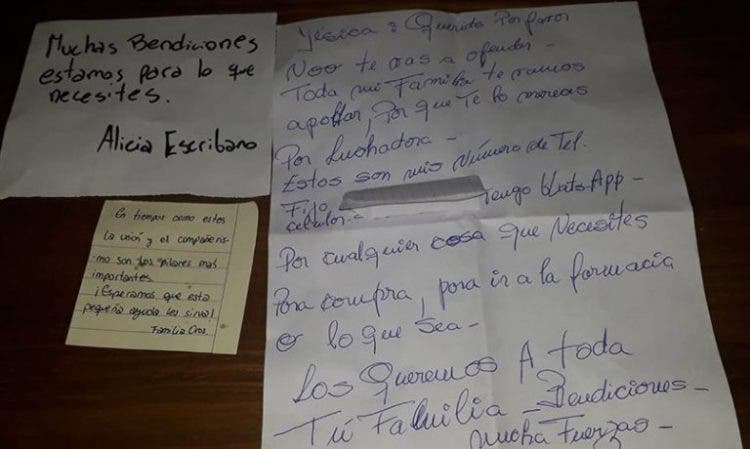 Muchas Bendiciones
estamos para lo que
necesites.
Alicia Escribano
En tiempos como estos
la unión y el compañeris-
mo son los pilares mas
importantes
¡Esperamos que esta
pequeña ayuda les sirva!
Familia Oros.
Yésica: Querida Por favor
Noo te vas a ofender -
Toda mi Familia te vamos
apoyar, Por que Te lo mereces
Por Luchadora -
Estos son mis Número de Tel.
Fijo
celular: Tengo WhatsApp -
Por cualquier cosa que Necesites
Para compra, para ir a la farmacia
o lo que Sea -
Los Queremos A toda
Tú Familia - Bendiciones -
mucha Fuerzas -